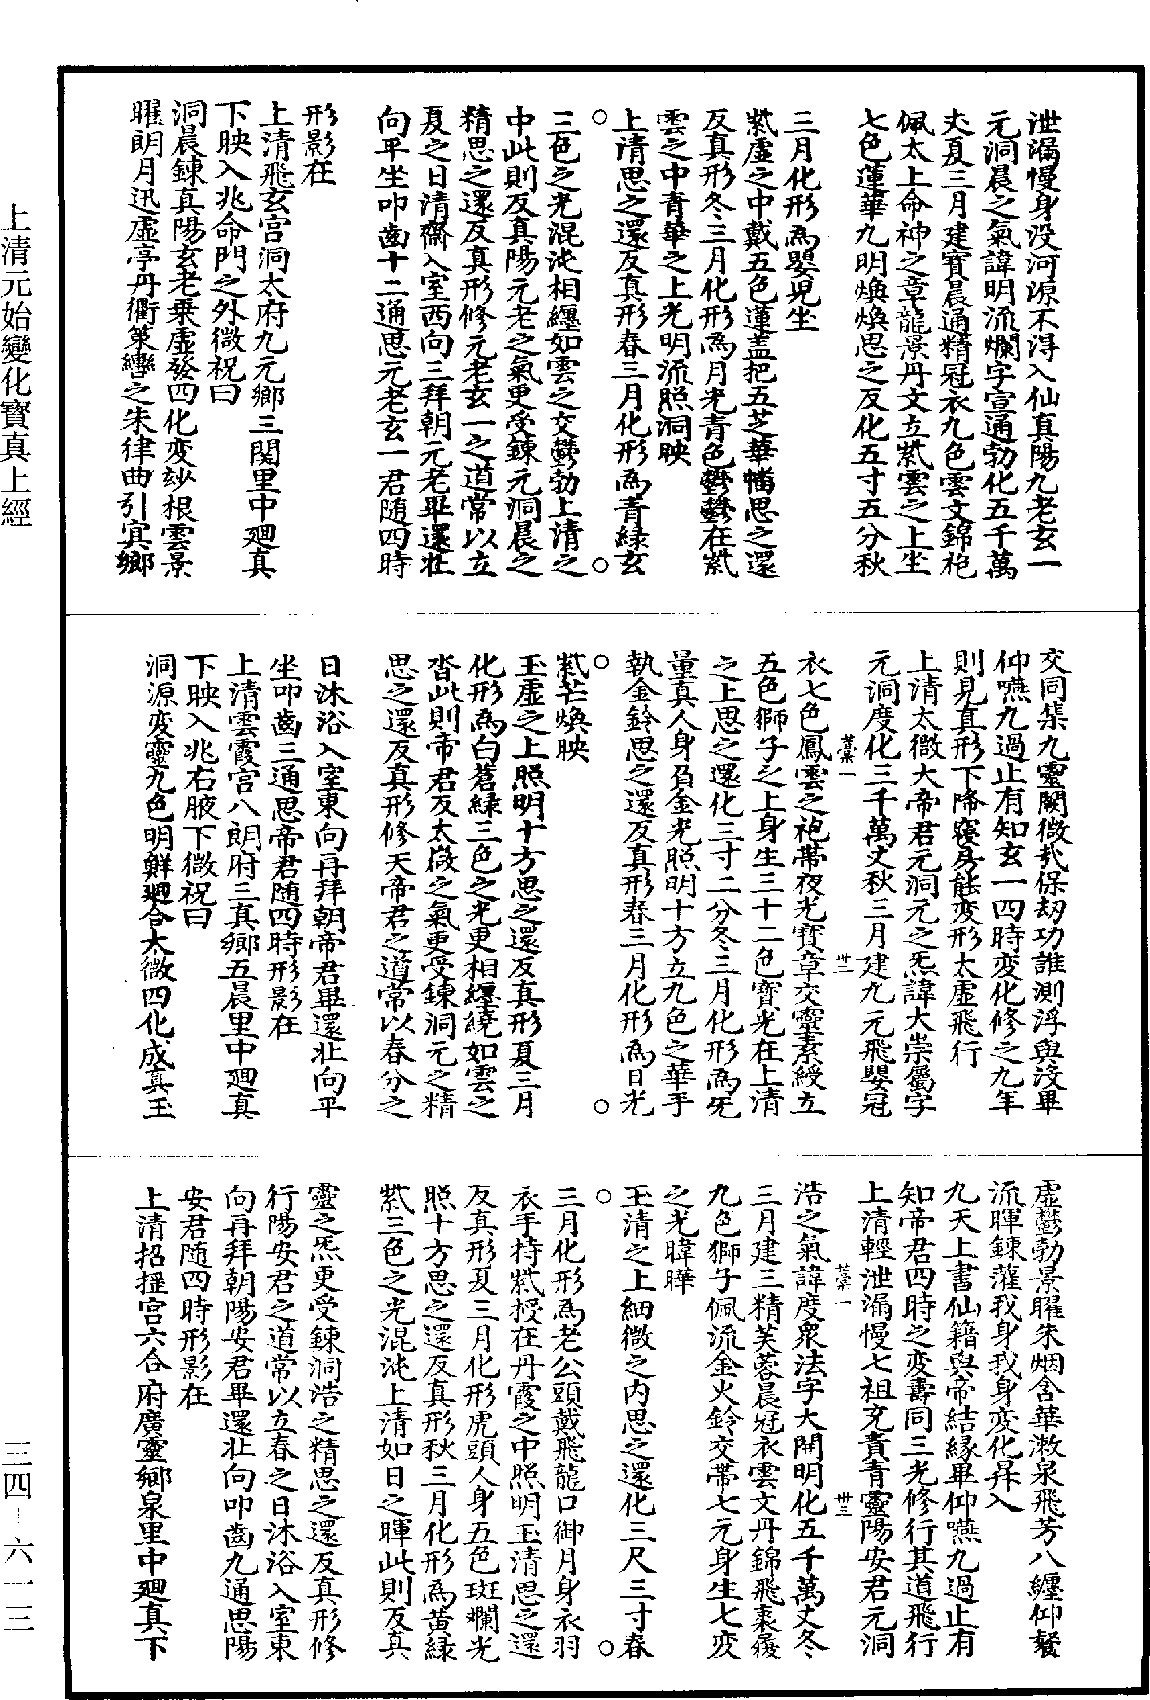 泄漏慢身没河源不得入仙真陽九老玄一
元洞晨之氣諱明流爛字宣通勃化五千萬
丈夏三月建寳晨通精冠衣九色雲文錦袍
佩太上命神之章龍景丹文立紫雲之上坐
七色蓮華九明煥煥思之反化五寸五分秋
三月化形為嬰兒坐
紫虛之中戴五色蓮盖把五芝華幡思之還
反真形冬三月化形為月光青色欝欝在紫
雲之中青華之上光明流照洞映
上清思之還反真形春三月化形為青緑玄
三色之光混沌相纒如雲之交欝勃上清之
中此則反真陽元老之氣更受鍊元洞晨之
精思之還反真形修元老玄一之道常以立
夏之日清齋入室西向三拜朝元老畢還北
向平坐叩齒十二通思元老玄一君随四時
形影在
上清飛玄宮洞太府九元鄉三関里中廻真
下映入兆命門之外微祝曰
洞晨鍊真陽玄老乗虛發四化变妙根雲景
曜朗月迅虛亭丹衢策轡之朱律曲引賓鄉
交同集九靈闕微哉保劫功誰測浮與没畢
仰嚥九過止有知玄一四時变化修之九年
則見真形下降寝房能变形太虛飛行
上清太微大帝君元洞元之炁諱大崇屬字
元洞度化三千萬丈秋三月建九元飛嬰冠
衣七色鳳雲之袍帶夜光寳章交靈素綬立
五色獅子之上身生三十二色寳光在上清
之上思之還化三寸二分冬三月化形為旡
量真人身負金光照明十方立九色之華手
執金鈴思之還反真形春三月化形為日光
紫芒煥映
玉虛之上照明十方思之還反真形夏三月
化形為白蒼緑三色之光更相纒繞如雲之
沓此則帝君反太微之氣更受鍊洞元之精
思之還反真形修天帝君之道常以春分之
日沐浴入室東向再拜朝帝君畢還北向平
坐叩齒三通思帝君随四時形影在
上清雲霞宮八朗府三真鄉五晨里中廻真
下映入兆右腋下微祝曰
洞源变靈九色明鮮廻合太微四化成真玉
虛欝勃景曜朱烟含華漱泉飛芳八纒仰餐
流暉鍊藻我身我身变化昇入
九天上書仙籍與帝結縁畢仰嚥九過止有
知帝君四時之变壽同三光修行其道飛行
上清輕泄漏慢七祖充責青靈陽安君元洞
浩之氣諱度衆法字大開明化五千萬丈冬
三月建三精芙蓉晨冠衣雲文丹錦飛裘履
九色獅子佩流金火鈴交帶七元身生七变
之光暐曄
玉清之上細微之内思之還化三尺三寸春
三月化形為老公頭戴飛龍口御月身衣羽
衣手持紫授在丹霞之中照明玉清思之還
反真形夏三月化形虎頭人身五色斑斕光
照十方思之還反真形秋三月化形為黄緑
紫三色之光混沌上清如日之暉此則反真
靈之炁更受鍊洞浩之精思之還反真形修
行陽安君之道常以立春之日沐浴入室東
向再拜朝陽安君畢還北向叩齒九通思陽
安君随四時形影在
上清招摇宮六合府廣靈鄉泉里中廻真下
上清元始變化寶真上經
三四-六一三